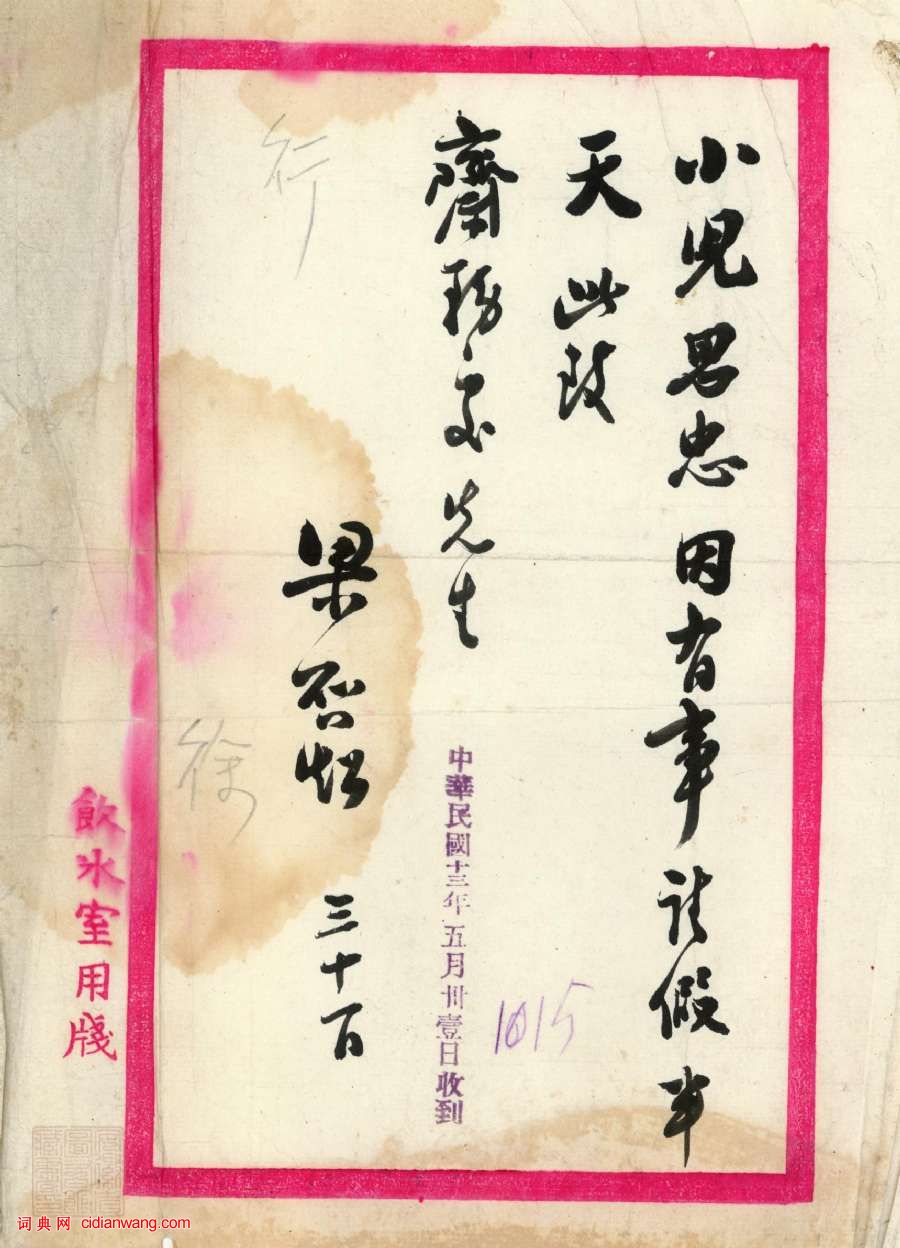 小兒思忠因有事請假半
天此致
齋務處先生
梁啓超 三十日
中華民國十三年五月卅壹日收到
1015
行
徐
飲冰室用牋
词典网 cidianwang.com